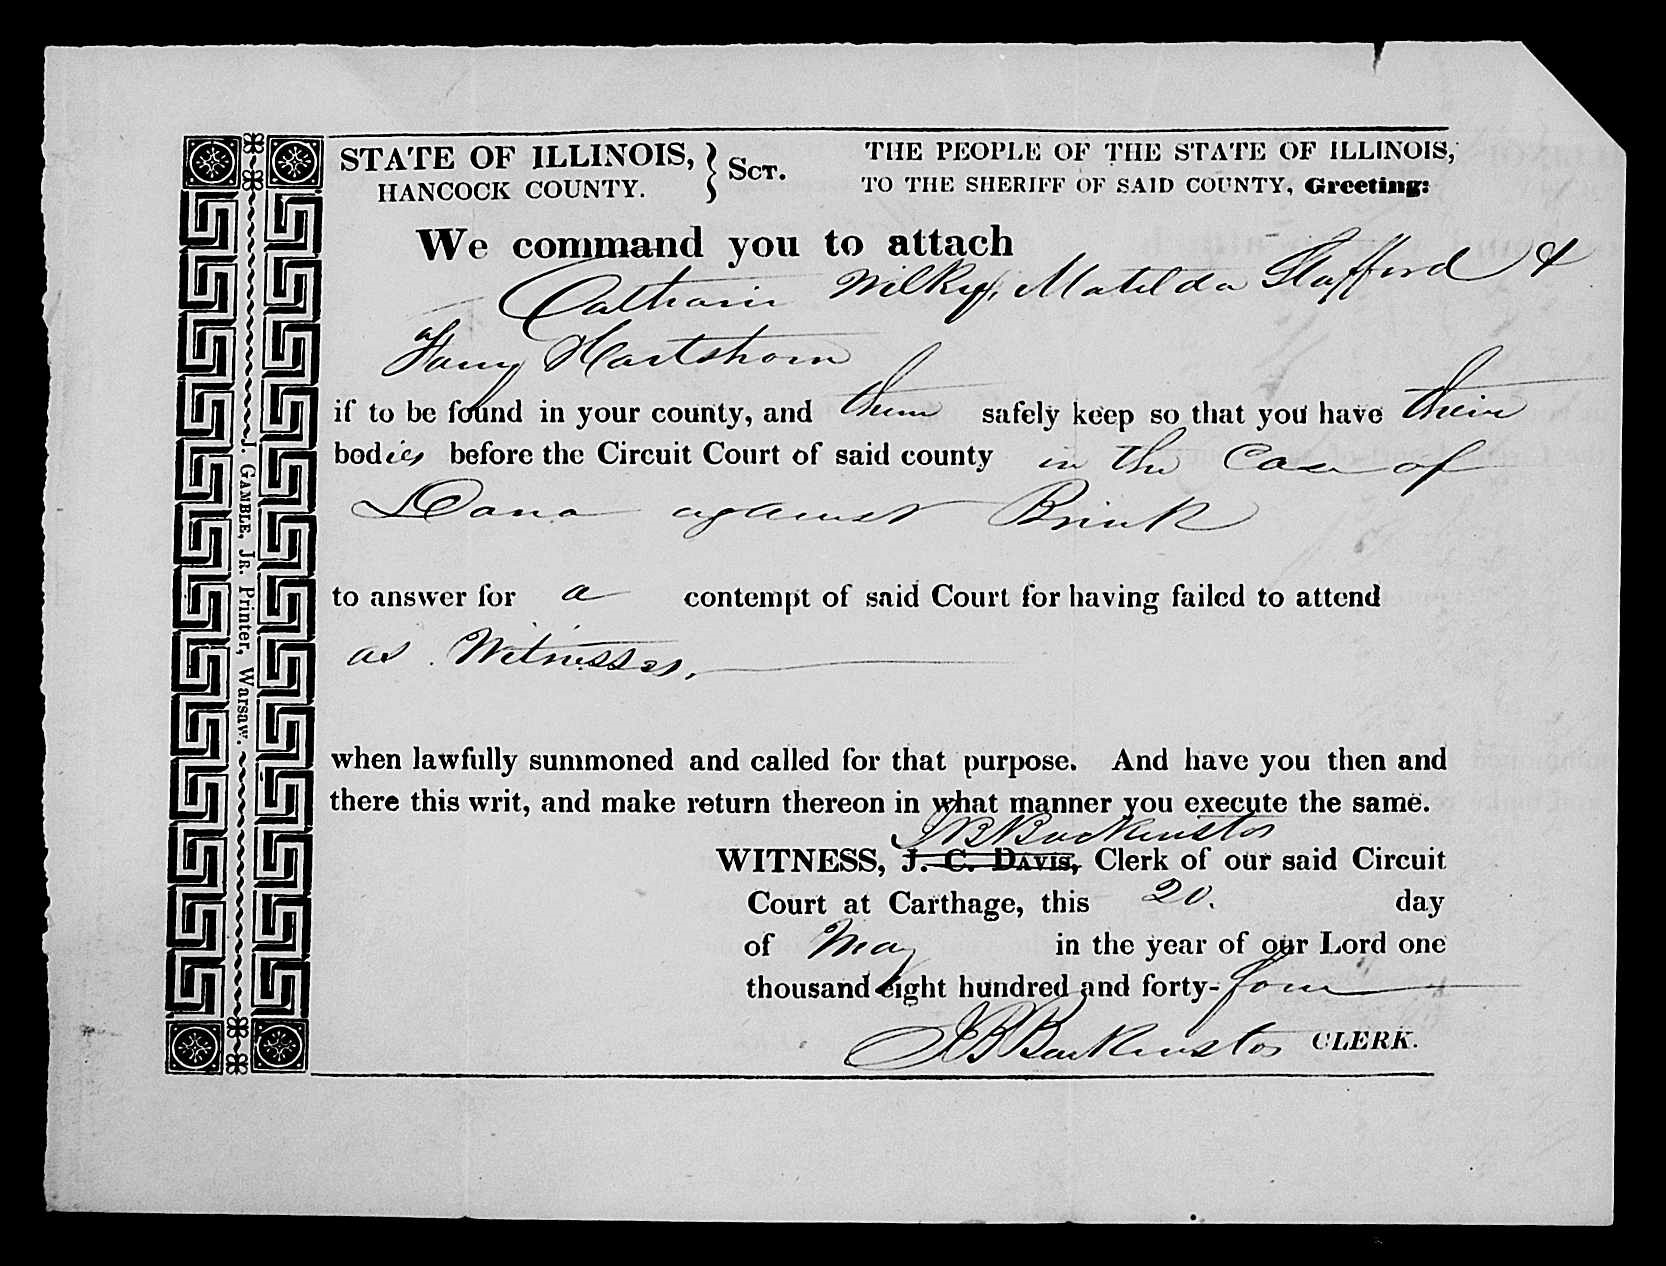 STATE OF ILLINOIS, } SCT.
HANCOCK COUNTY.
THE PEOPLE OF THE STATE OF ILLINOIS,
TO THE SHERIFF OF SAID COUNTY, Greeting:
We command you to attach
Catharin Wilkey, Matilda Stafford &
Fany Hartshorn
if to be found in your county, and them safely keep so that you have their
bodies before the Circuit Court of said county in the Case of
Dana against Brink
to answer for a contempt of said Court for having failed to attend
as Witnesses,
when lawfully summoned and called for that purpose. And have you then and
there this writ, and make return thereon in what manner you execute the same.
J B Backenstos
WITNESS, J. C. DAVIS, Clerk of our said Circuit
Court at Carthage, this 20. day
of May in the year of our Lord one
thousand eight hundred and forty-four
J B Backenstos CLERK.
J. GAMBLE, JR. Printer, Warsaw.